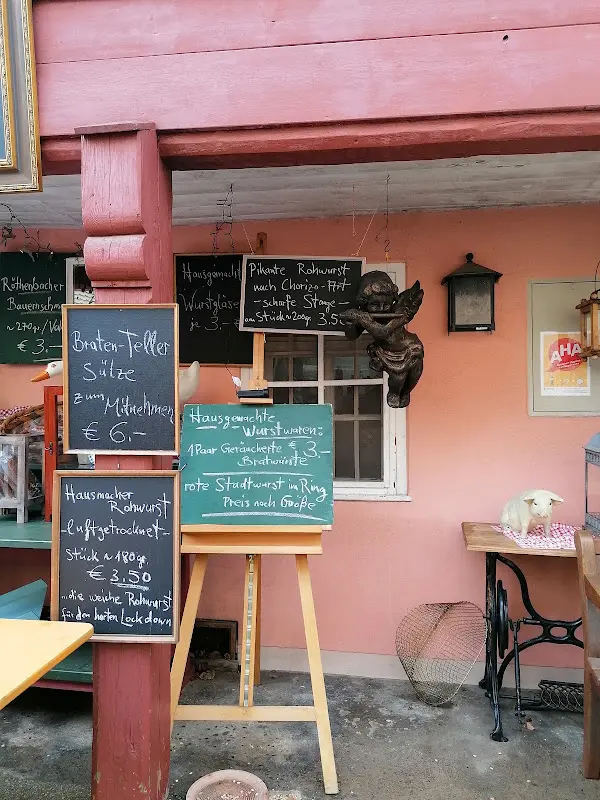 Röthenbacher
Bauernschm
~270gr/Val
€ 3.-
Hausgemach
Wurstgläse
je 3.-
Pikante Rohwurst
nach Chorizo-Art
- scharfe Stange -
am Stück ~ 200gr 3.5
AHA
Braten-Teller
Sülze
zum Mitnehmen
€ 6.-
Hausgemachte
Wurstwaren:
1 Paar Geräucherte € 3.-
Bratwürste
rote Stadtwurst im Ring
Preis nach Größe
Hausmacher
Rohwurst
- luftgetrocknet -
Stück ~ 180gr
€ 3.50
...die weiche Rohwurst
für den harten Lockdown